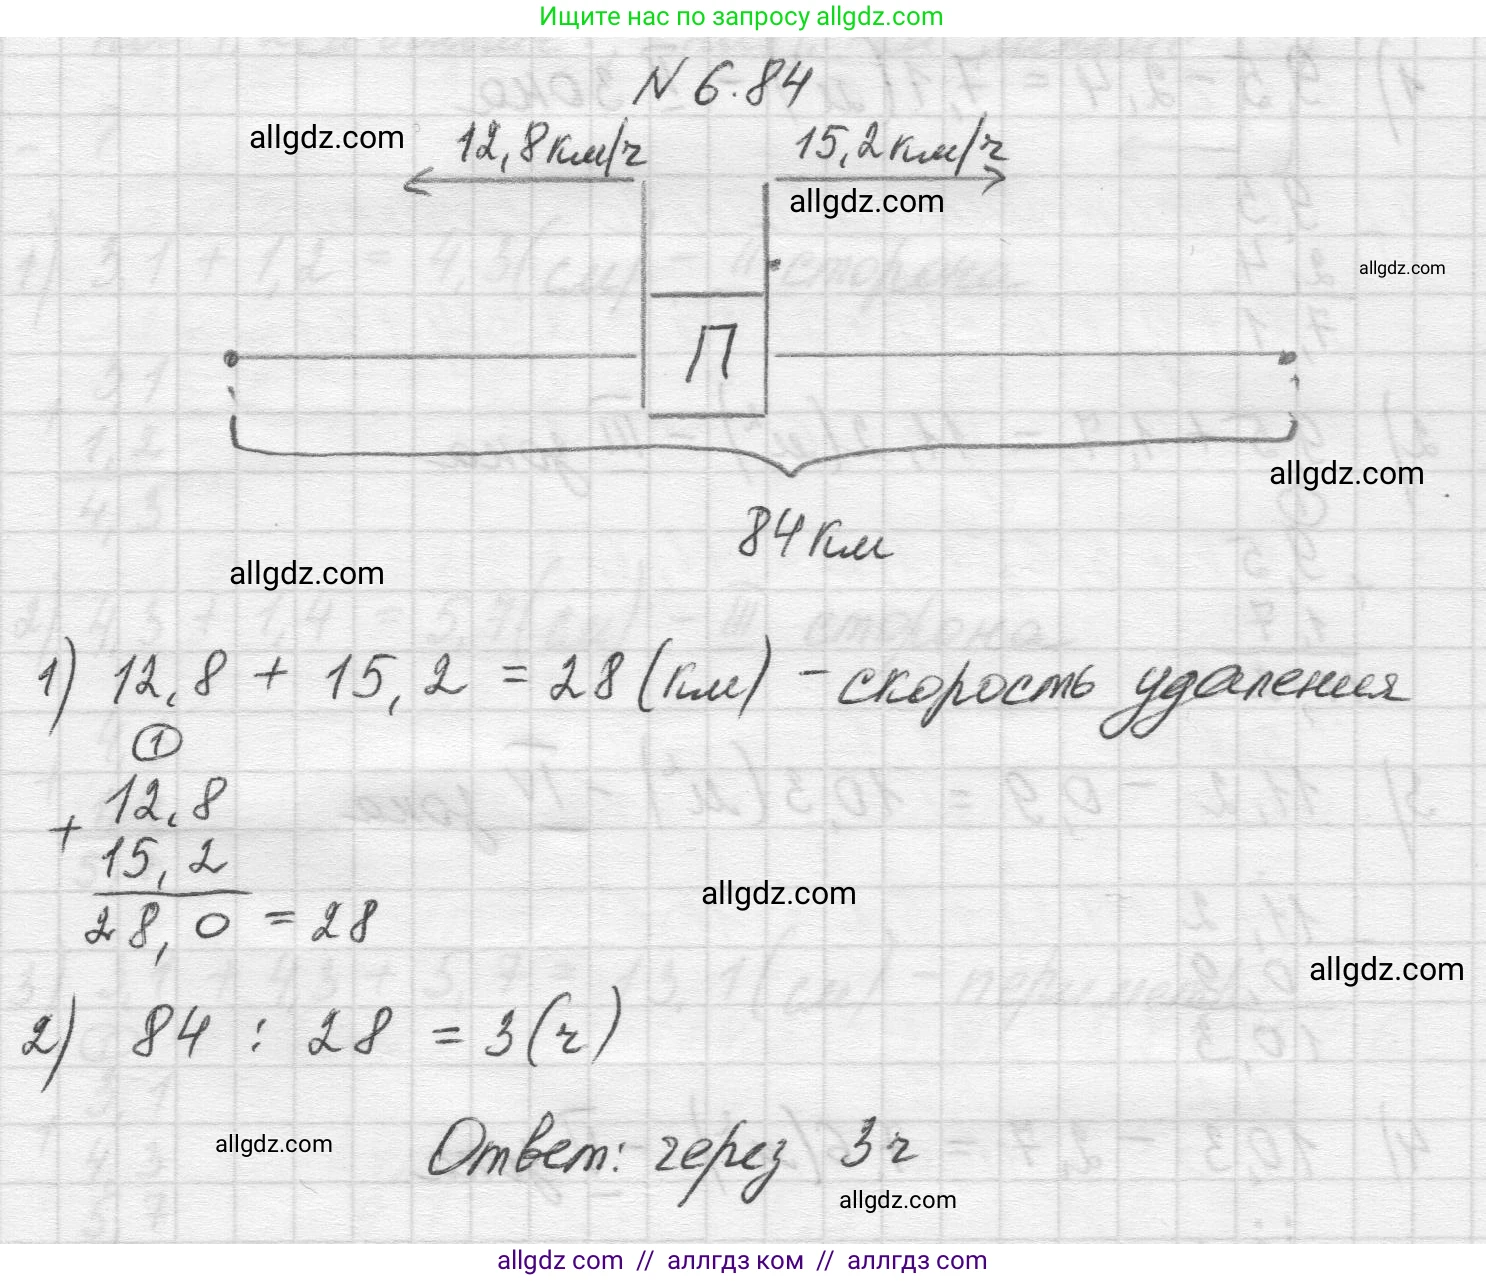 Ищите нас по запросу allgdz.com
N 6.84
allgdz.com
12,8км/ч
15,2км/ч
allgdz.com
allgdz.com
П
allgdz.com
84 км
allgdz.com
1) 12,8 + 15,2 = 28 (км) - скорость удаления
1
12,8
+
15,2
28,0 = 28
allgdz.com
allgdz.com
2) 84 : 28 = 3 (ч)
allgdz.com
Ответ: через 3ч
allgdz.com
allgdz.com // аллгдз ком // аллгдз.com